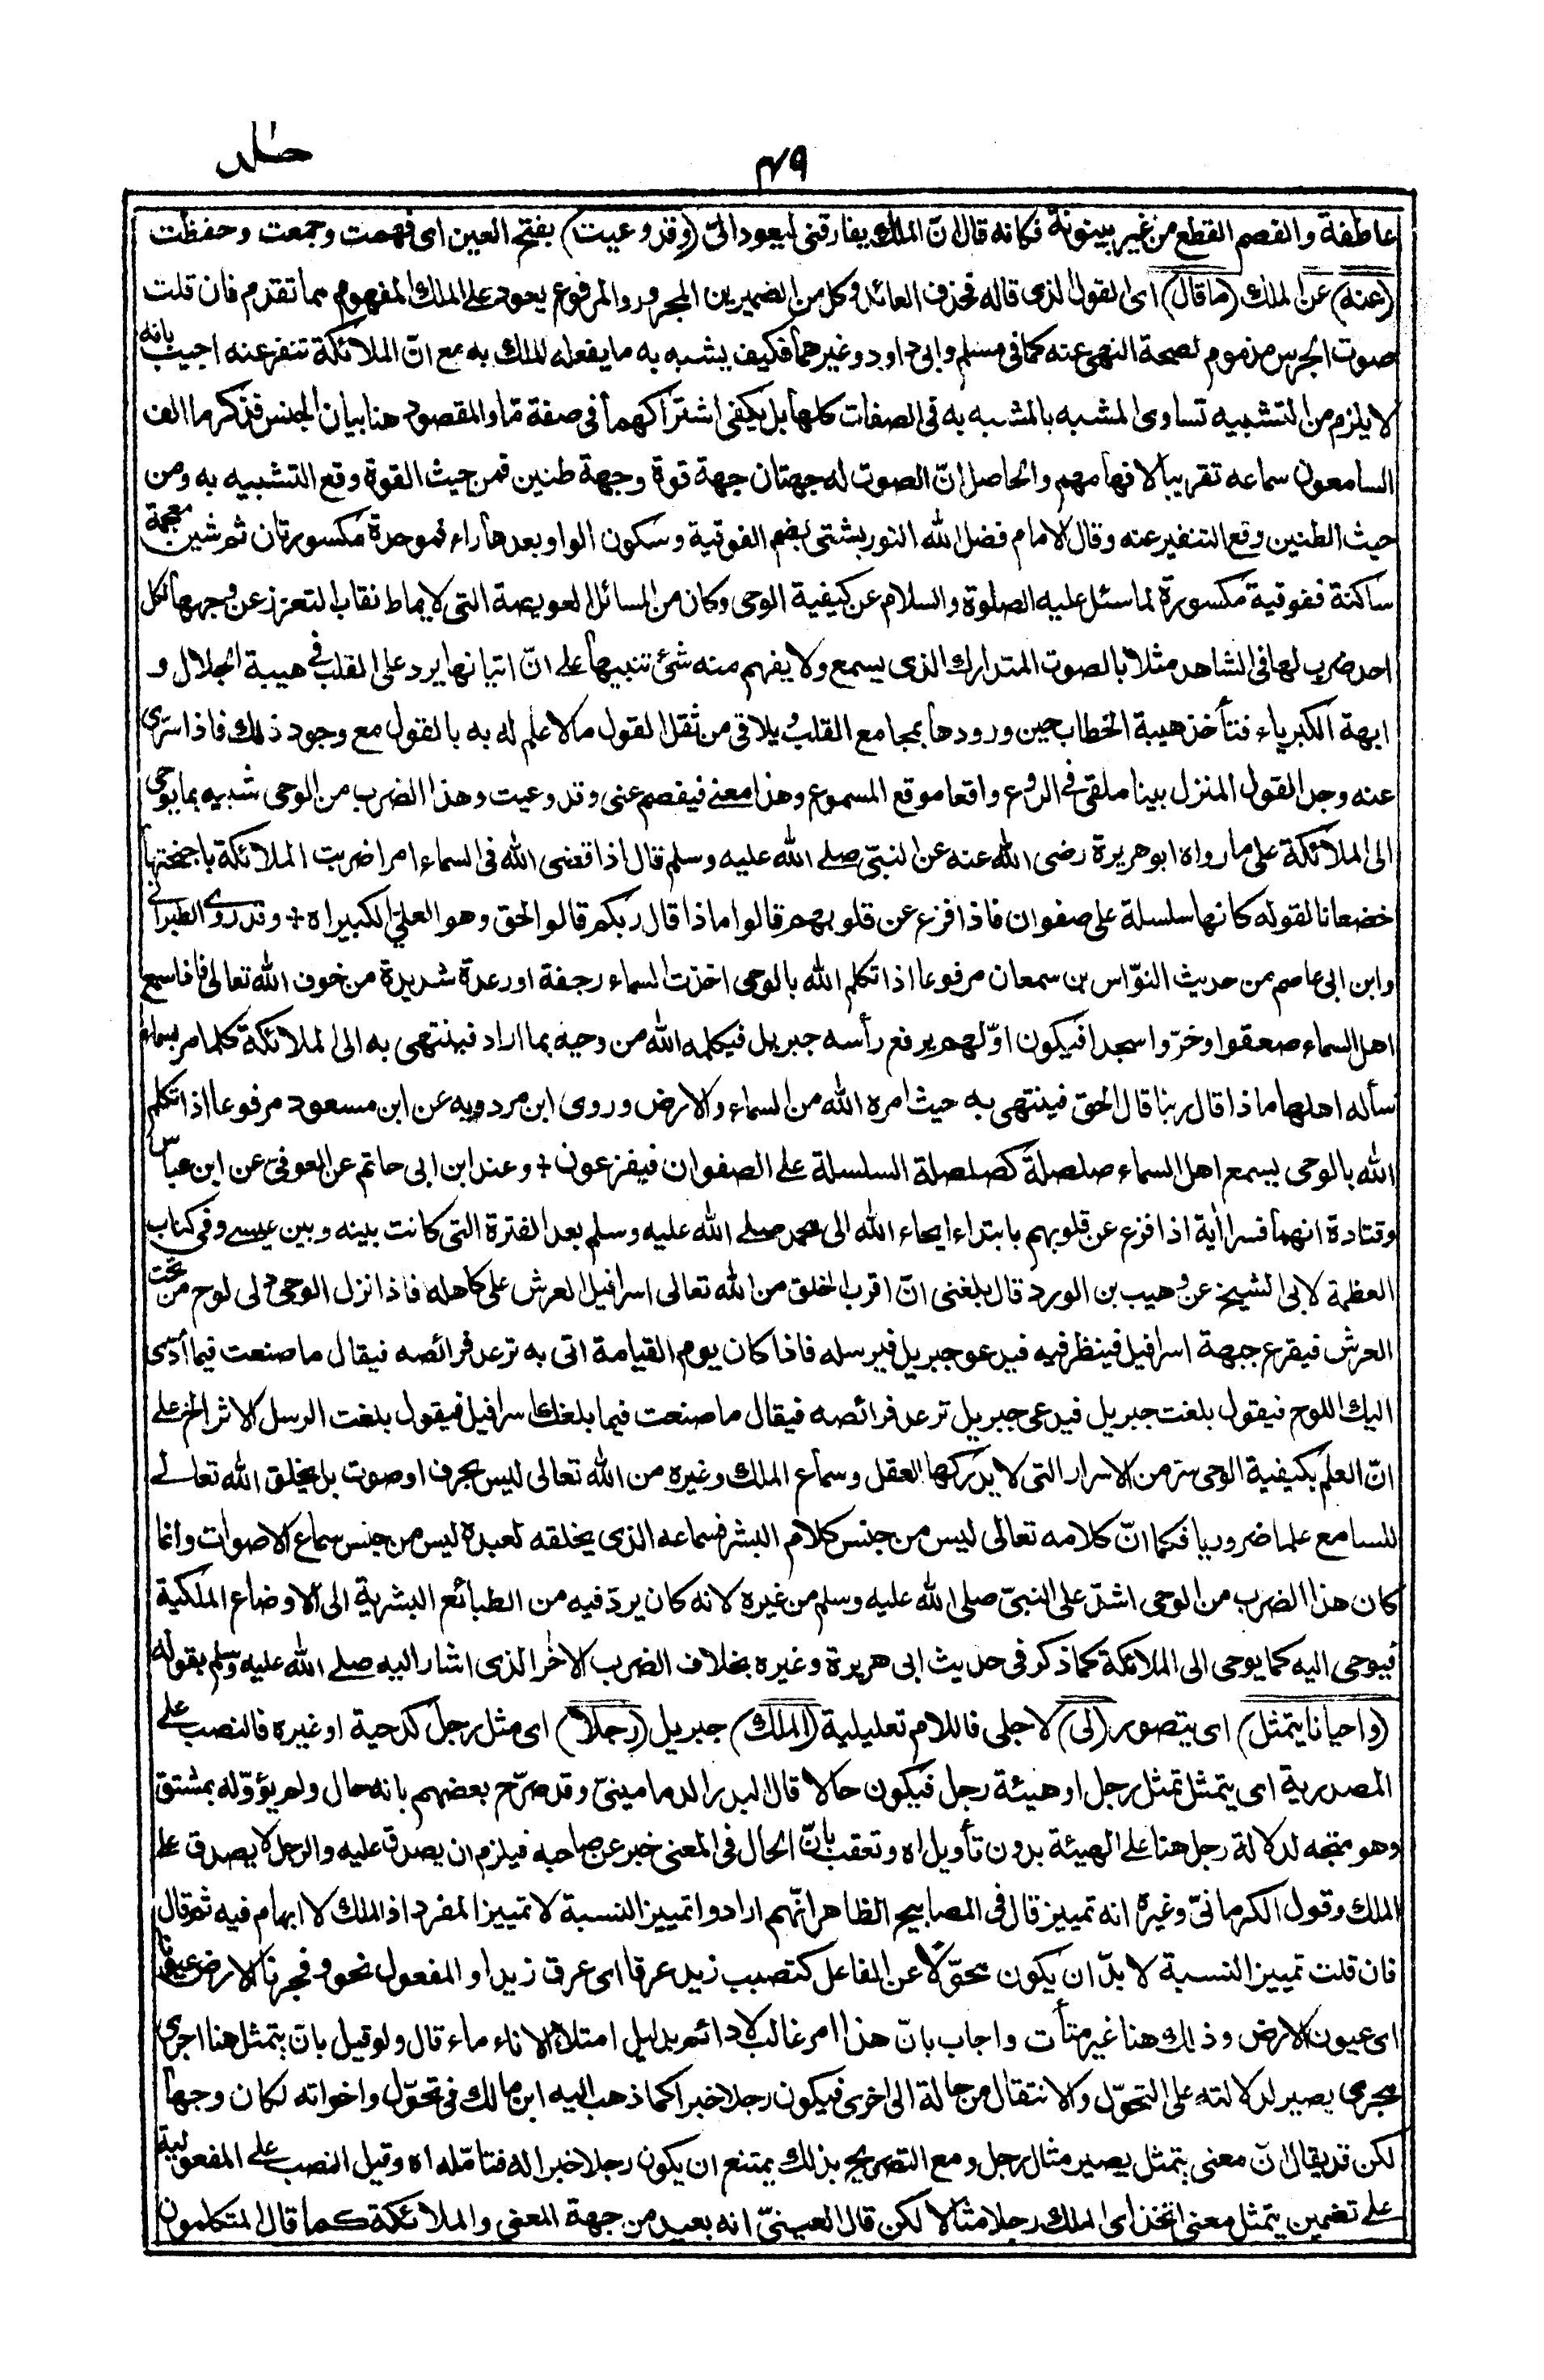 ٤٩
عاطفة والفصم القطع من غير بينونة فكانه قال انّ الملك يفارقنى ليعود الىّ (وقد وعيت) بفتح العين اى فهمت وجمعت وحفظت
(عنه) عن الملك (ما قال) اى القول الذى قاله فحذف العائد وكل من الضميرين المجرور والمرفوع يعود على الملك المفهوم مما تقدم فان قلت
صوت الجرس مذموم لصحة النهى عنه كما فى مسلم وابى داود وغيرهما فكيف يشبه به ما يفعله الملك به مع انّ الملائكة تنفر عنه اجيب بانه
لا يلزم من التشبيه تساوى المشبه بالمشبه به فى الصفات كلها بل يكفى اشتراكهما فى صفة مّا والمقصود هنا بيان الجنس فذكر ما الف
السامعون سماعه تقريبا لافهامهم والحاصل انّ الصوت له جهتان جهة قوة وجهة طنين فمن حيث القوة وقع التشبيه به ومن
حيث الطنين وقع التنفير عنه وقال الامام فضل الله التوربشتى بضم الفوقية وسكون الواو بعدها راء فموحدة مكسورتان ثم شين معجمة
ساكنة ففوقية مكسورة لما سئل عليه الصلوة والسلام عن كيفية الوحى وكان من المسائل العويصة التى لا يماط نقاب التعزز عن وجهها لكل
احد ضرب لها فى الشاهد مثلا بالصوت المتدارك الذى يسمع ولا يفهم منه شئ تنبيها على انّ اتيانها يرد على القلب فى هيبة الجلال و
ابهة الكبرياء فتأخذ هيبة الخطاب حين ورودها بمجامع القلب ويلاقى من ثقل القول ما لا علم له به بالقول مع وجود ذلك فاذا سرّى
عنه وجد القول المنزل بينا ملقى فى الروع واقعا موقع المسموع وهذا معنى فيفصم عنى وقد وعيت وهذا الضرب من الوحى شبيه بما يوحى
الى الملائكة على ما رواه ابو هريرة رضى الله عنه عن النبىّ صلى الله عليه وسلم قال اذا قضى الله فى السماء امرا ضربت الملائكة باجنحتها
خضعانا لقوله كانها سلسلة على صفوان فاذا فزع عن قلوبهم قالوا ماذا قال ربكم قالوا الحق وهو العلىّ الكبير اه + وقد روى الطبرانى
وابن ابى عاصم من حديث النوّاس بن سمعان مرفوعا اذا تكلم الله بالوحى اخذت السماء رجفة او رعدة شديدة من خوف الله تعالى فاذا سمع
اهل السماء صعقوا وخرّوا سجدا فيكون اوّلهم يرفع رأسه جبريل فيكلمه الله من وحيه بما اراد فينتهى به الى الملائكة كلما مر بسماء
سأله اهلها ماذا قال ربنا قال الحق فينتهى به حيث امره الله من السماء والارض وروى ابن مردويه عن ابن مسعود مرفوعا اذا تكلم
الله بالوحى يسمع اهل السماء صلصلة كصلصلة السلسلة على الصفوان فيفزعون + وعند ابن ابى حاتم عن العوفىّ عن ابن عباس
وقتادة انهما فسرا أية اذا فزع عن قلوبهم بابتداء ايحاء الله الى محمد صلى الله عليه وسلم بعد الفترة التى كانت بينه وبين عيسى وفى كتاب
العظمة لابى الشيخ عن وهيب بن الورد قال بلغنى انّ اقرب الخلق من الله تعالى اسرافيل العرش على كاهله فاذا نزل الوحى دلى لوح من تحت
العرش فيقرع جبهة اسرافيل فينظر فيه فيدعو جبريل فيرسله فاذا كان يوم القيامة اتى به ترعد فرائصه فيقال ما صنعت فيما أدّى
اليك اللوح فيقول بلغت جبريل فيدعى جبريل ترعد فرائصه فيقال ما صنعت فيما بلغك اسرافيل فيقول بلغت الرسل الاثر الخ على
انّ العلم بكيفية الوحى سرّ من الاسرار التى لا يدركها العقل وسماع الملك وغيره من الله تعالى ليس بحرف او صوت بل يخلق الله تعالى
للسامع علما ضروريا فكما انّ كلامه تعالى ليس من جنس كلام البشر فسماعه الذى يخلقه لعبده ليس من جنس سماع الاصوات وانما
كان هذا الضرب من الوحى اشدّ على النبىّ صلى الله عليه وسلم من غيره لانه كان يردّ فيه من الطبائع البشرية الى الاوضاع الملكية
فيوحى اليه كما يوحى الى الملائكة كما ذكر فى حديث ابى هريرة وغيره بخلاف الضرب الاٰخر الذى اشار اليه صلى الله عليه وسلم بقوله
(واحيانا يتمثل) اى يتصور (لى) لاجلى فاللام تعليلية (الملك) جبريل (رجلا) اى مثل رجل كدحية او غيره فالنصب على
المصدرية اى يتمثل تمثل رجل او هيئة رجل فيكون حالا قال البدر الدمامينىّ وقد صرّح بعضهم بانه حال ولم يؤوّله بمشتق
وهو متجه لدلالة رجل هنا على الهيئة بدون تأويل اه وتعقب بانّ الحال فى المعنى خبر عن صاحبه فيلزم ان يصدق عليه والرجل لا يصدق على
الملك وقول الكرمانىّ وغيره انه تمييز قال فى المصابيح الظاهر انّهم ارادوا تمييز النسبة لا تمييز المفرد اذ الملك لا ابهام فيه ثم قال
فان قلت تمييز النسبة لا بدّ ان يكون محوّلا عن الفاعل كتصبب زيد عرقا اى عرق زيد او المفعول نحو وفجرنا الارض عيونا
اى عيون الارض وذلك هنا غير متأت واجاب بانّ هذا امر غالب لا دائم بدليل امتلأ الاناء ماء قال ولو قيل بانّ يتمثل هنا اجرى
مجرى يصير لدلالته على التحوّل والانتقال من حالة الى اخرى فيكون رجلا خبرا كما ذهب اليه ابن مالك فى تحوّل واخواته لكان وجها
لكن قد يقال انّ معنى يتمثل يصير مثال رجل ومع التصريح بذلك يمتنع ان يكون رجلا خبرا له فتامّله اه وقيل النصب على المفعولية
على تضمين يتمثل معنى اتخذ اى الملك رجلا مثالا لكن قال العينىّ انه بعيد من جهة المعنى والملائكة كما قال المتكلمون